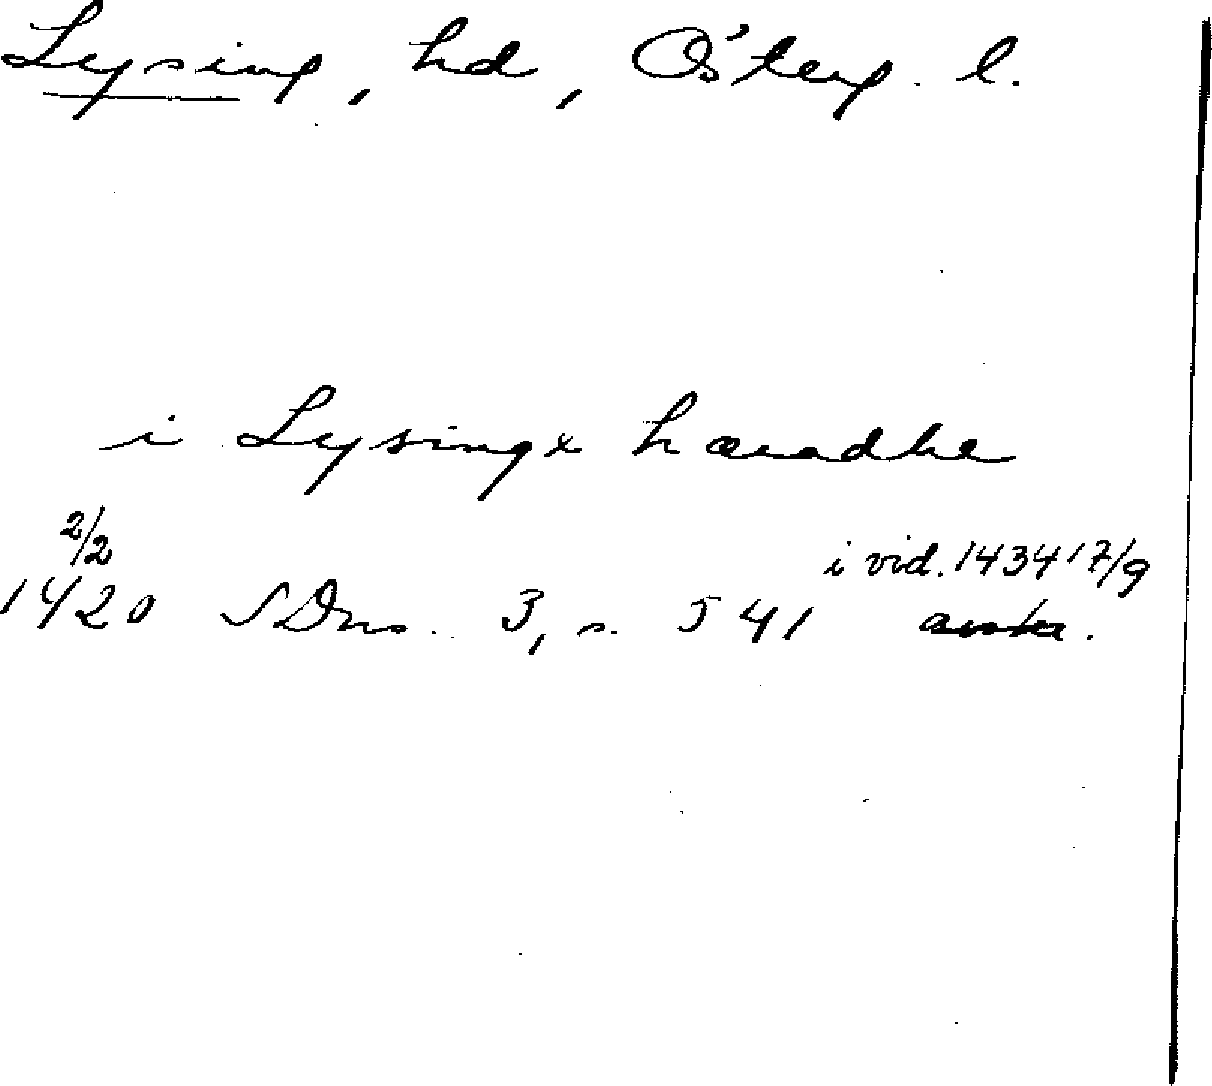 Lysing, hd, Österg. l.
i Lysingx haradhe
2/2 i vid. 1434 17/9
1420 SDns. 3, s. 541